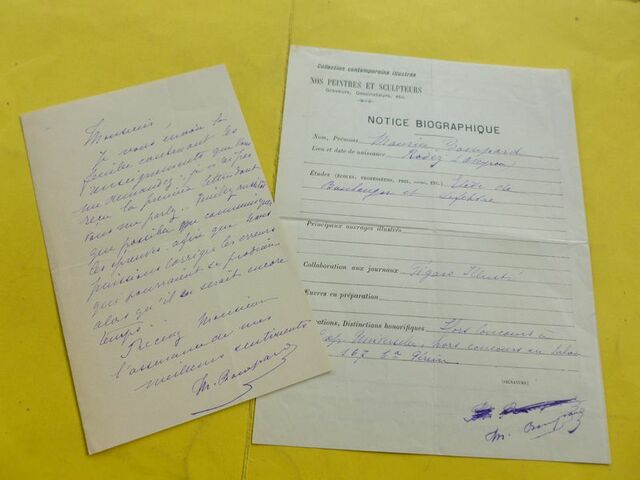 Monsieur
Je vous envoie la
feuille contenant les
renseignements que vous
me demandez. Je n'ai pas
reçu la première lettre dont
vous me parlez. Veuillez
que possible me communiquer
les épreuves afin que nous
puissions corriger les erreurs
qui pourraient se produire
alors qu'il en serait encore
temps.
Recevez Monsieur
l'assurance de mes
meilleurs sentiments
M. Bompard
Collection contemporaine illustrée
NOS PEINTRES ET SCULPTEURS
Graveurs, Dessinateurs, etc.
NOTICE BIOGRAPHIQUE
Nom, Prénoms Maurice Bompard
Lieu et date de naissance Rodez Aveyron
Études (ÉCOLES, PROFESSEURS, PRIX, ETC.) Élève de
Boulanger et Lefebvre
Principaux ouvrages illustrés
Collaboration aux journaux Figaro Illustré
Œuvres en préparation
Distinctions honorifiques Hors Concours à
Exp. Universelle, hors concours au Salon
167
(SIGNATURE)
M. Bompard